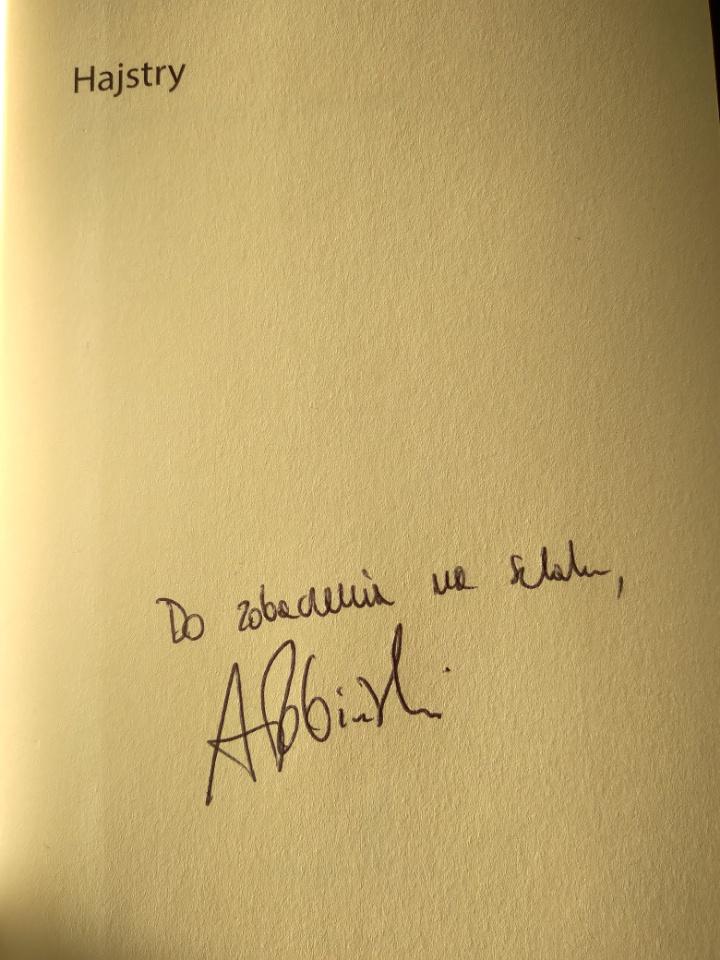 Hajstry
Do zobaczenia na szlaku,
ARobiński